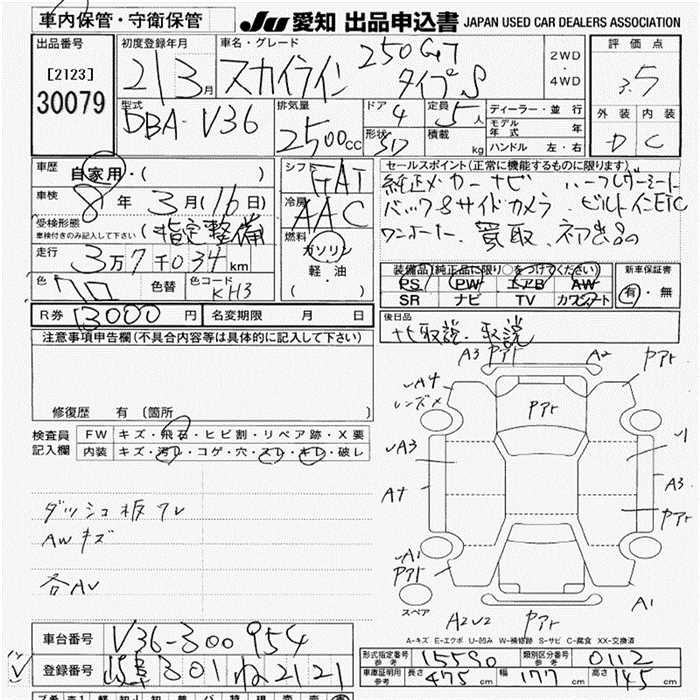 車内保管・守衛保管
JU 愛知 出品申込書 JAPAN USED CAR DEALERS ASSOCIATION
出品番号
[2123]
30079
初度登録年月
21 3月
車名・グレード
スカイライン 250GT
タイプS
2WD
・
4WD
評価点
3.5
外装 内装
D C
型式
DBA-V36
排気量
2500cc
ドア
4
形状
SD
定員
5人
積載
kg
ディーラー・並行
モデル年式 年
ハンドル 左・右
車歴
自家用・( )
車検
8年 3月(16日)
受検形態
車検付きのみ記入して下さい
(指定整備)
走行
3万7千034km
色
クロ
色替
色コード
KH3
シフト
FAT
冷房
AAC
燃料
ガソリン
軽油
・
( )
セールスポイント(正常に機能するものに限ります)
純正メーカーナビ ハーフレザーシート
バック&サイドカメラ ビルトインETC
ワンオーナー 買取 初出品の
装備品(純正品に限り○をつけてください)
PS PW エアB AW
SR ナビ TV カワシート
新車保証書
有・無
R券 13000円
名変期限 月 日
後日品
ナビ取説、取説
注意事項申告欄(不具合内容等は具体的に記入して下さい)
修復歴 有(箇所 )
検査員
記入欄
FW キズ・飛石・ヒビ割・リペア跡・X要
内装 キズ・汚レ・コゲ・穴・スレ・キレ・破レ
ダッシュ板ワレ
AWキズ
各AU
A3 Pアト A2 Pアト
A4
レンズメ
Pアト
A3
1
A4
A3
Pアト
A1
Pアト
スペア
A2 U2 Pアト A1
A-キズ E-エクボ U-凹み W-補修跡 S-サビ C-腐食 XX-交換済
車台番号 V36-300954
登録番号 岐阜 301 ね 2121
型式指定番号
参考
15580
類別区分番号
参考
0112
車庫証明用
参考
長さ 475cm 幅 177cm 高さ 145cm